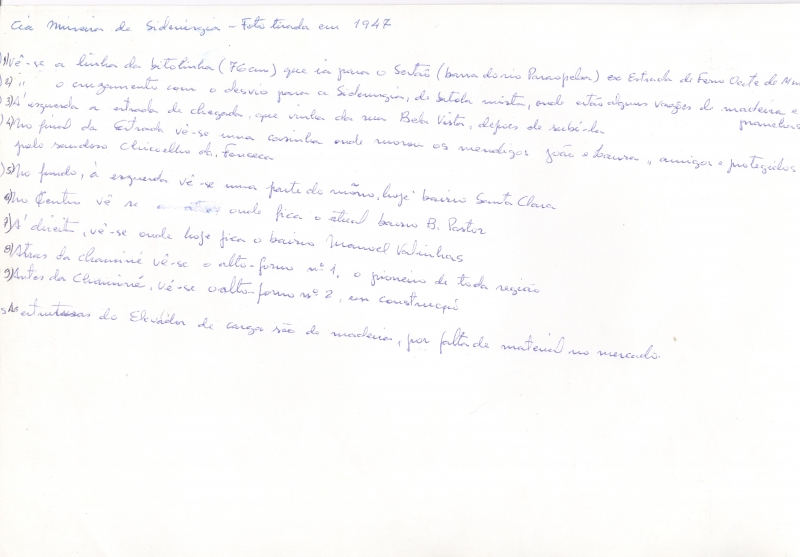 Cia Mineira de Siderurgia - Foto tirada em 1947
1) Vê-se a linha da bitolinha (76 cm) que ia para o Sertão (barra do rio Paraopeba) ex Estrada de Ferro Oeste de
2) " o cruzamento com o desvio para a Siderurgia, de bitola mista, onde estão alguns vagões de madeira e
pranchas
3) À esquerda a estrada de chegada, que vinha da rua Bela Vista, depois de subi-la
4) No final da Estrada vê-se uma casinha onde moram os mendigos João e Laura, amigos e protegidos
pelo saudoso Chicoelho da Fonseca
5) No fundo, à esquerda vê-se uma parte do morro, hoje bairro Santa Clara
6) No Centro vê se onde fica o atual bairro B. Pastor
7) À direita, vê-se onde hoje fica o bairro Manoel Valinhas
8) Atras da chaminé vê-se o alto-forno nº 1, o pioneiro de toda região
9) Antes da Chaminé, vê-se o alto-forno nº 2, em construção
As estruturas do Elevador de carga são de madeira, por falta de material no mercado